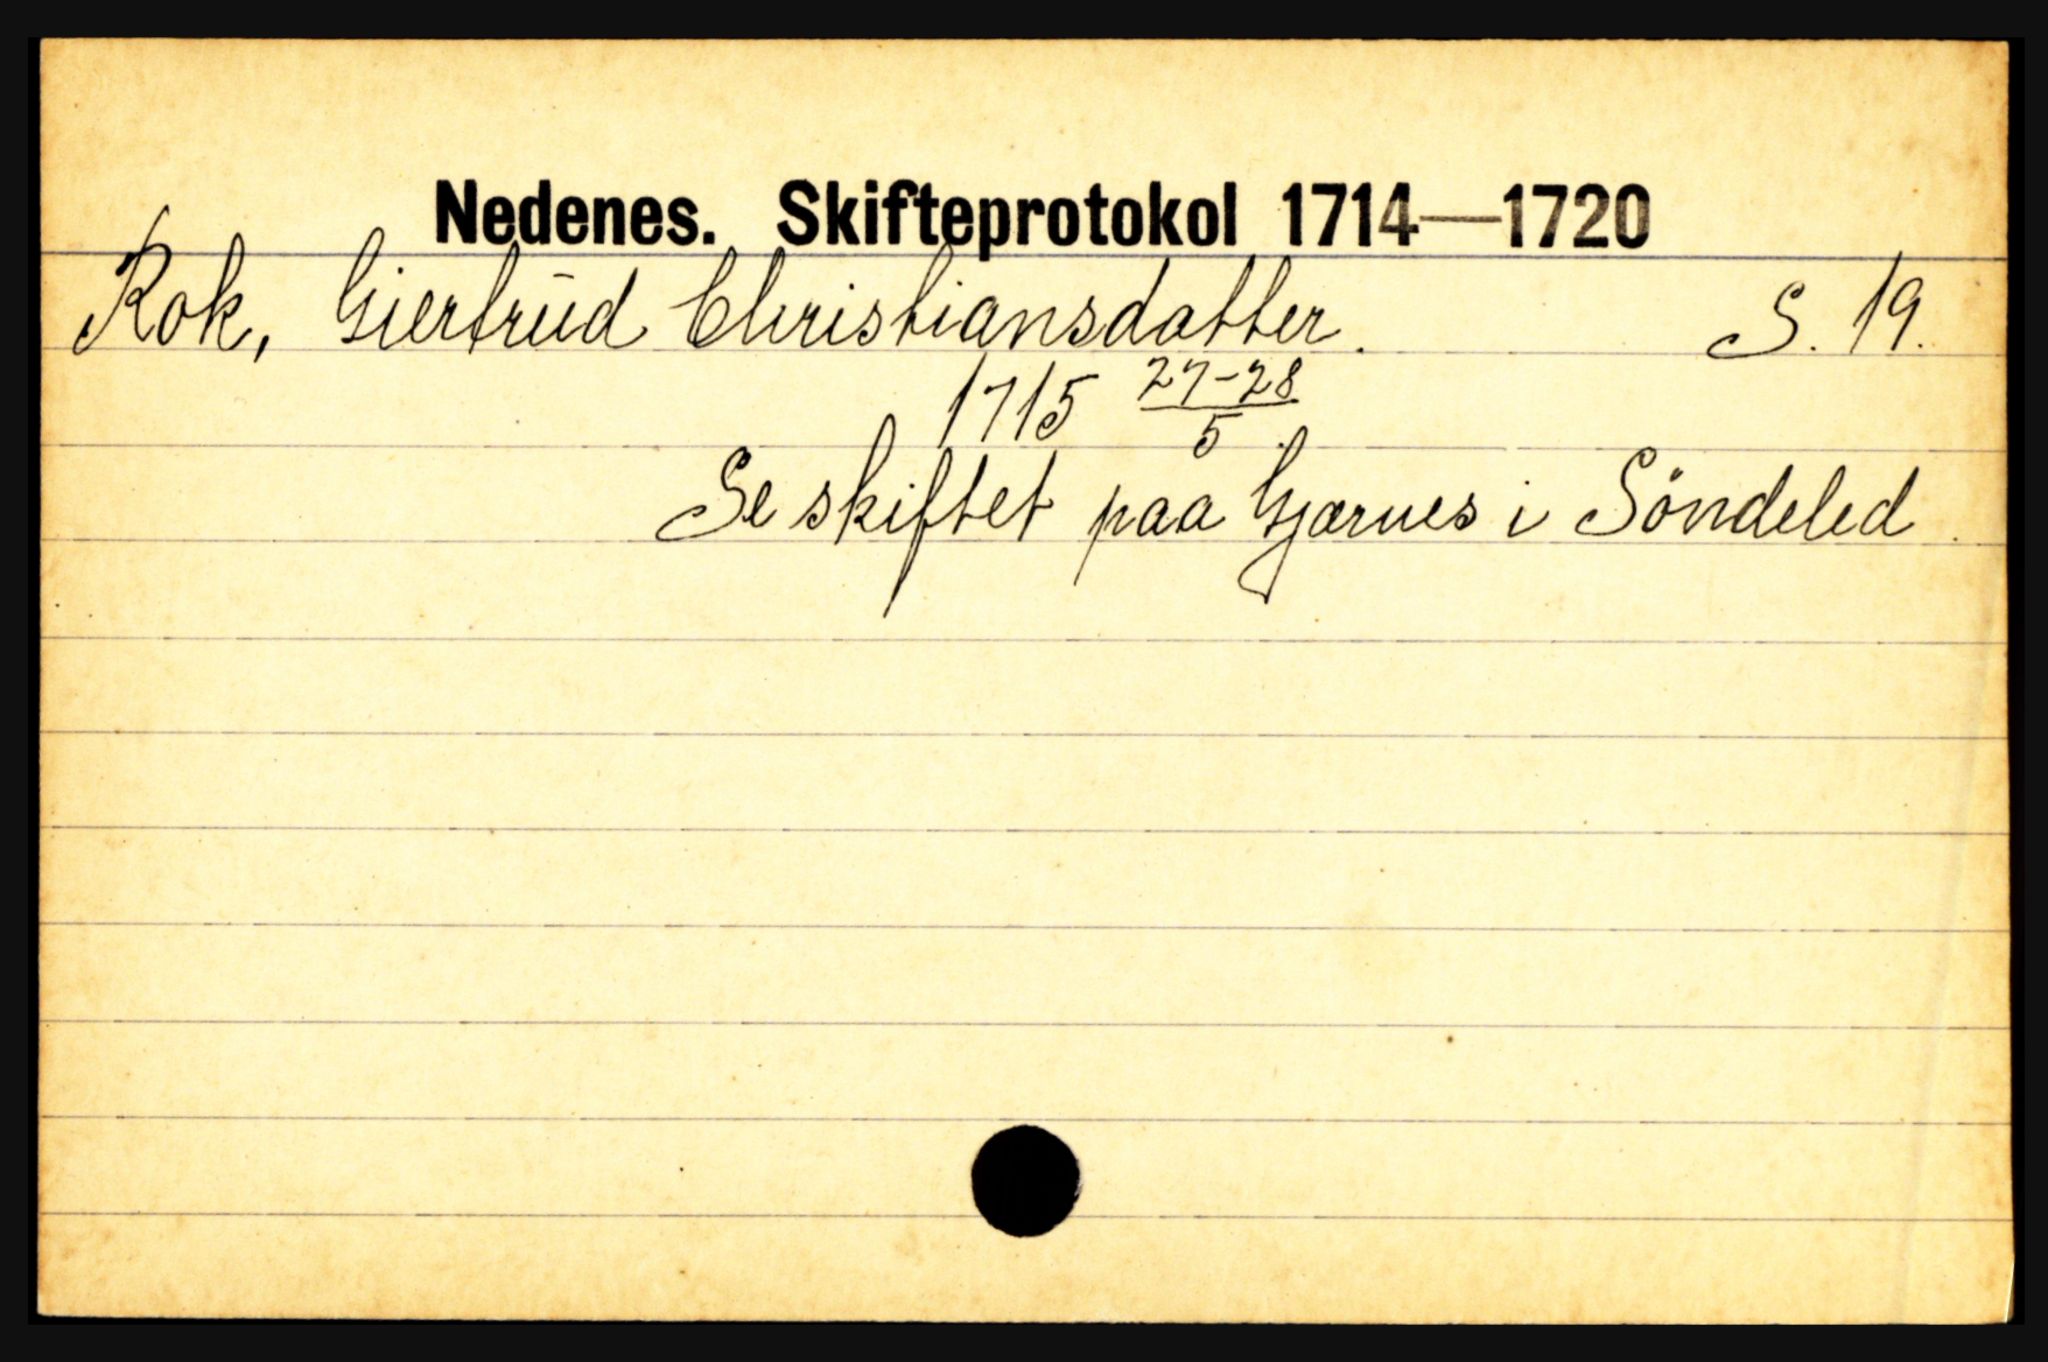 Nedenes. Skifteprotokol 1714—1720
Rok, Giertrud Christiansdatter. S. 19.
1715 27-28/5
Se skiftet paa Gjærnes i Söndeled.